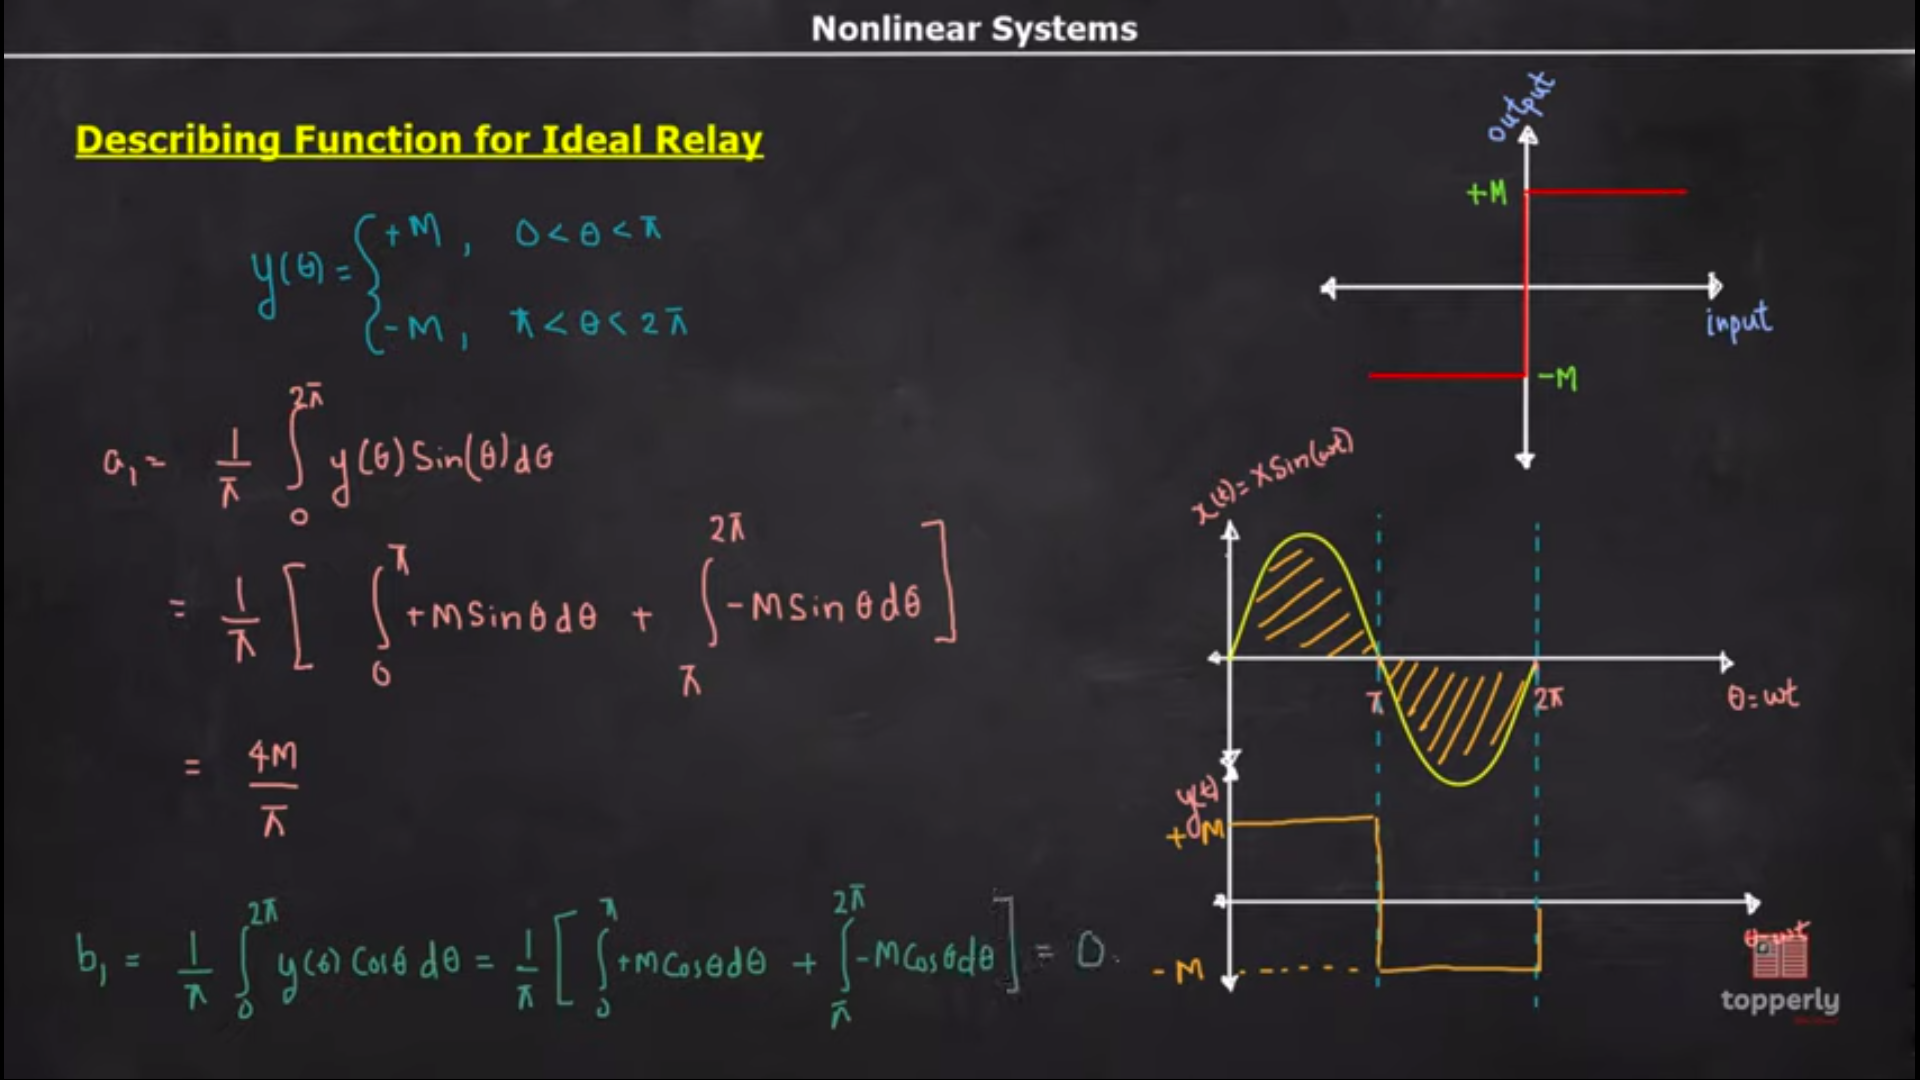 Nonlinear Systems
Describing Function for Ideal Relay
y(θ) = { +M , 0 < θ < π
-M , π < θ < 2π
a₁ = 1/π ∫₀^2π y(θ) Sin(θ) dθ
= 1/π [ ∫₀^π +M Sin θ dθ + ∫π^2π -M Sin θ dθ ]
= 4M/π
b₁ = 1/π ∫₀^2π y(θ) Cosθ dθ = 1/π [ ∫₀^π +M Cosθ dθ + ∫π^2π -M Cosθ dθ ] = 0.
output
+M
input
-M
x(t) = X Sin(ωt)
π
2π
θ = ωt
y(t)
+M
-M
θ = ωt
topperly